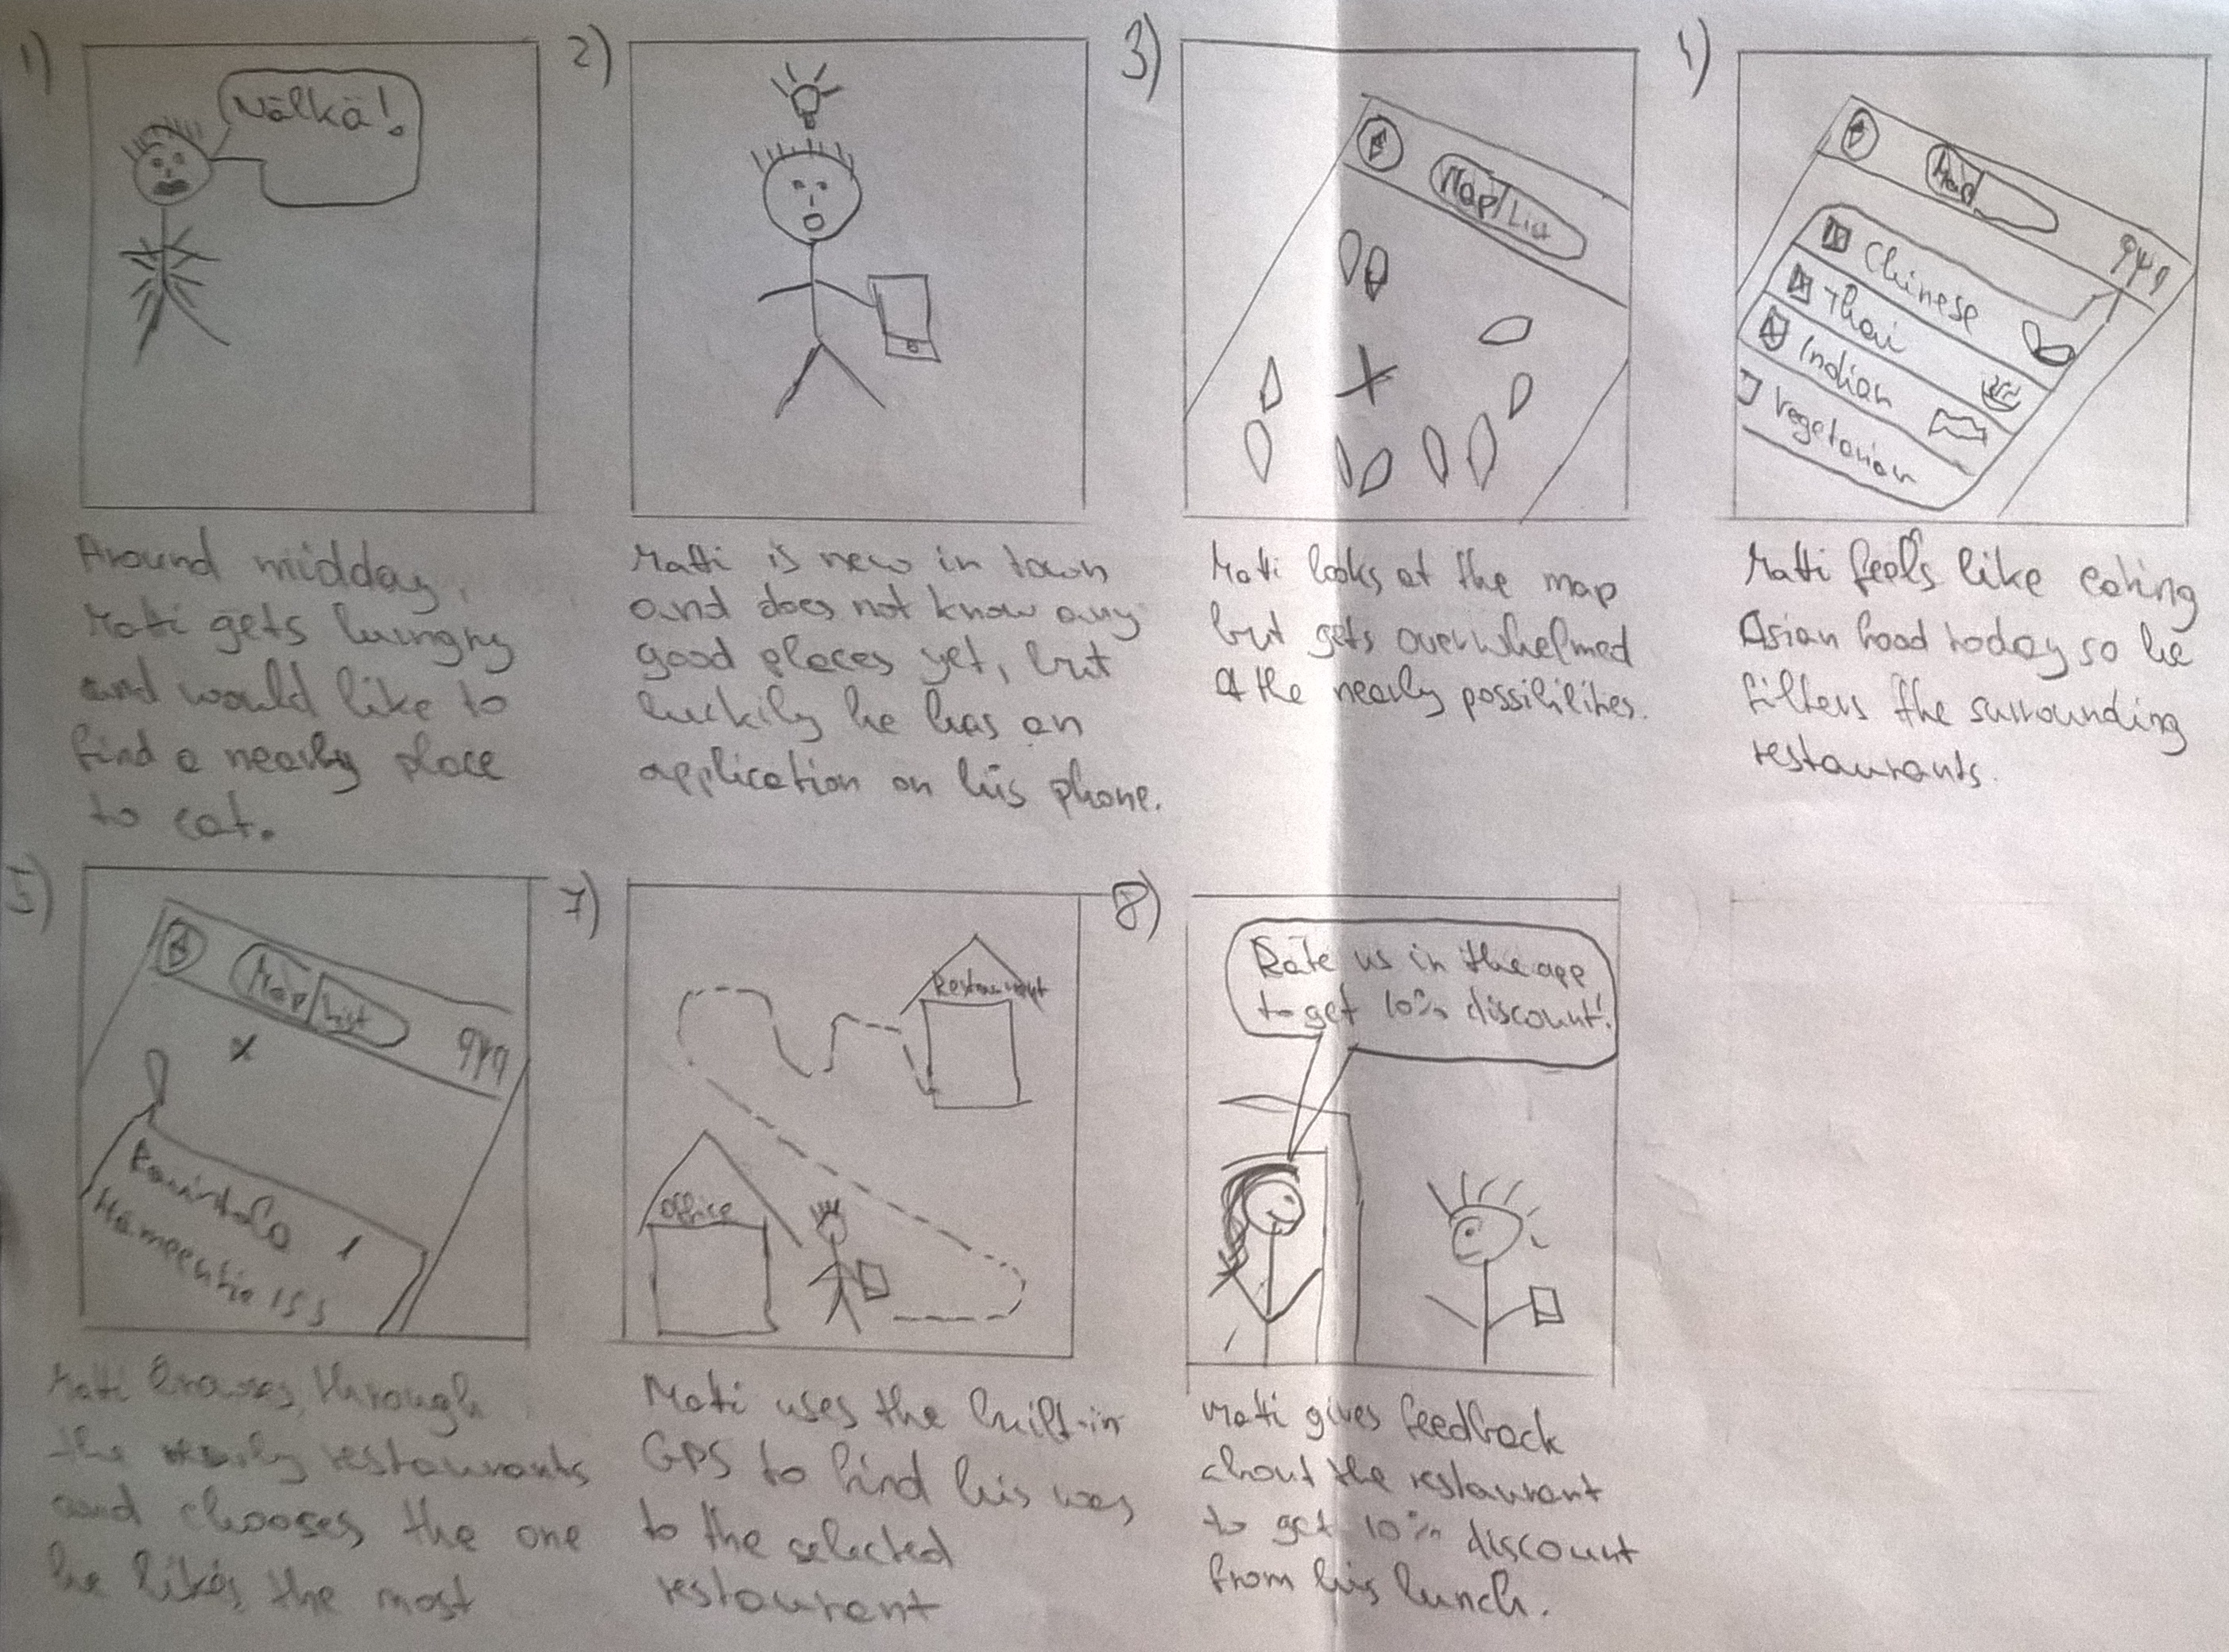 1)
Nälkä!
Around midday,
Matti gets hungry
and would like to
find a nearby place
to eat.
2)
Matti is new in town
and does not know any
good places yet, but
luckily he has an
application on his phone.
3)
Map/List
Matti looks at the map
but gets overwhelmed
of the nearby possibilities.
4)
Map
Chinese
Thai
Indian
Vegetarian
Matti feels like eating
Asian food today so he
filters the surrounding
restaurants.
5)
Map/List
x
Matti browses through
the nearby restaurants
and chooses the one
he likes the most
7)
Restaurant
Office
Matti uses the built-in
GPS to find his way
to the selected
restaurant
8)
Rate us in the app
to get 10% discount!
Matti gives feedback
about the restaurant
to get 10% discount
from his lunch.